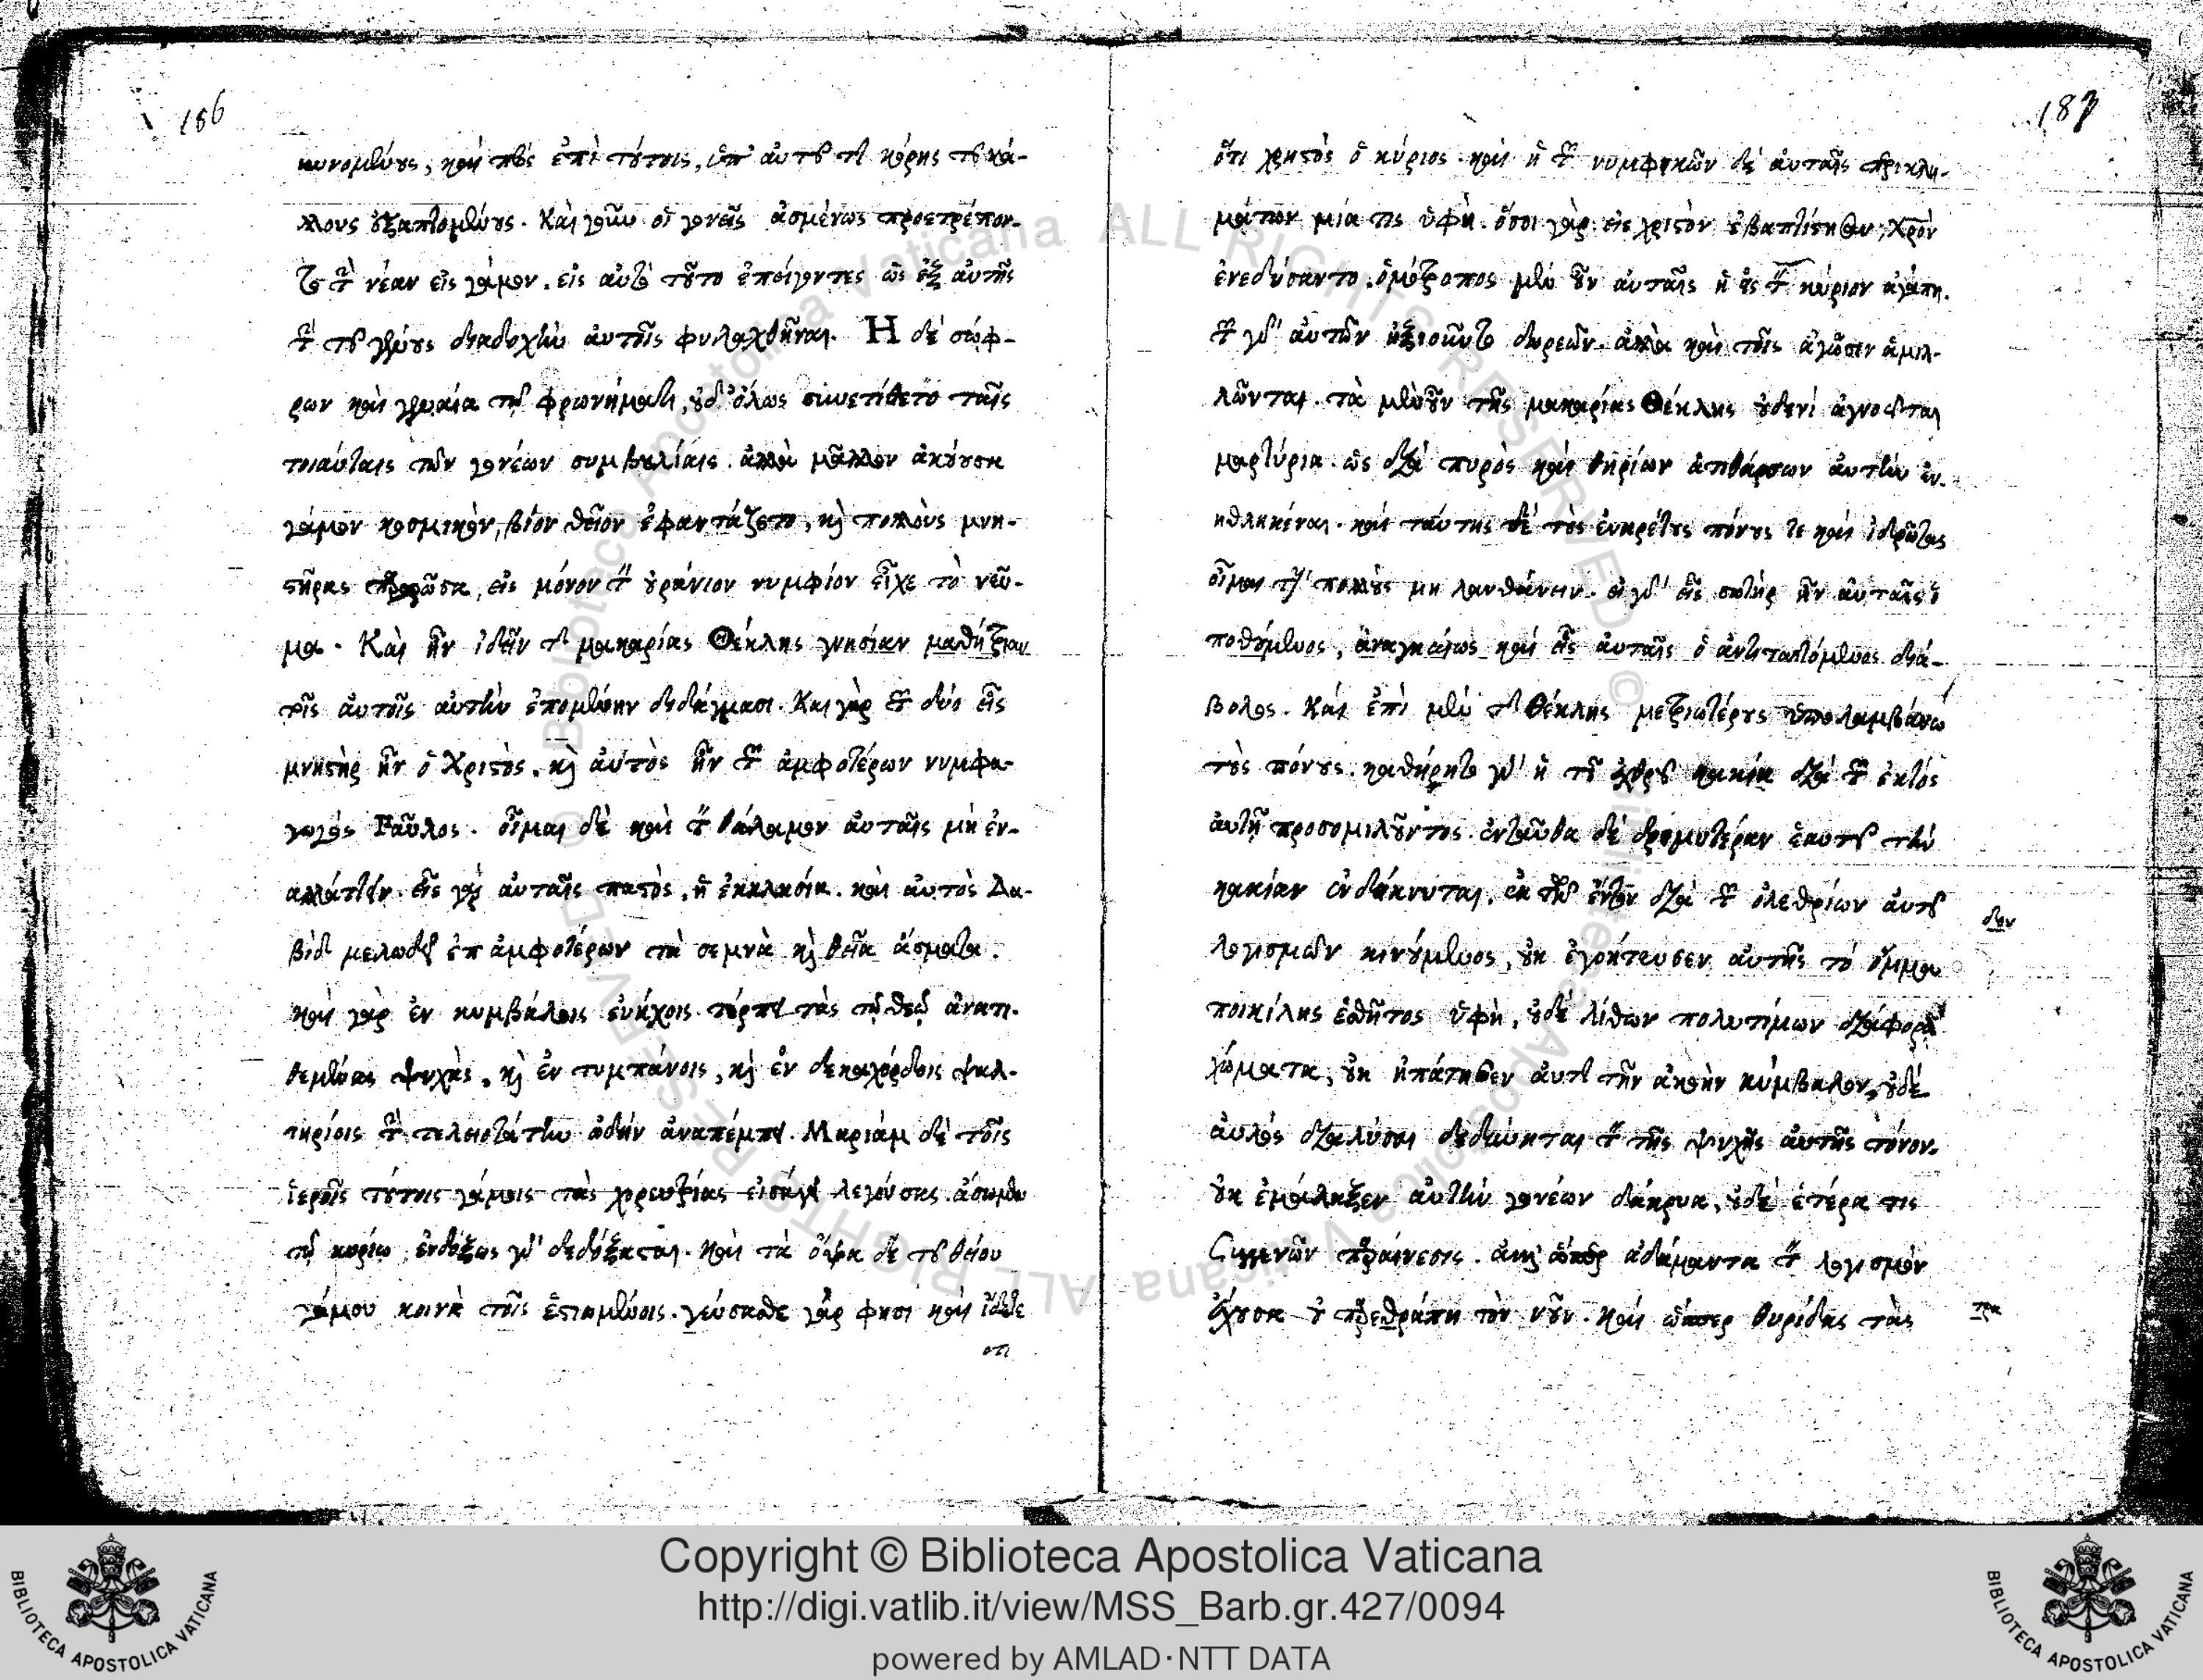 186
νυνομένους, καὶ πρὸς ἐπὶ τούτοις, ὑπ' αὐτοῦ τῆς κόρης τοῦ κά-
λλους ἐξαπτομένους. Καὶ γοῦν οἱ γονεῖς ἀσμένως προετρέπον-
το τὴν νέαν εἰς γάμον. εἰς αὐτὸ τοῦτο ἐπείγοντες ὡς ἐξ αὐτῆς
τὴν τοῦ γένους διαδοχὴν αὐτοῖς φυλαχθῆναι. Η δὲ σώφ-
ρων καὶ γενναία τῷ φρονήματι, οὐδ' ὅλως συνετίθετο ταῖς
τοιαύταις τῶν γονέων συμβουλίαις. ἀλλὰ μᾶλλον ἀκούουσα
γάμον κοσμικὸν, βίον θεῖον ἐφαντάζετο, κὶ πολλοὺς μνη-
στῆρας παρορῶσα, εἰς μόνον τὸν οὐράνιον νυμφίον εἶχε τὸ νεῦ-
μα. Καὶ ἦν ἰδεῖν τῆς μακαρίας Θέκλης γνησίαν μαθήτριαν
τοῖς αὐτοῖς αὐτὴν ἑπομένην διδάγμασι. Και γὰρ τῶν δύο εἷς
μνηστὴρ ἦν ὁ Χριστὸς. κὶ αὐτὸς ἦν τῶν ἀμφοτέρων νυμφα-
γωγὸς Παῦλος. οἶμαι δὲ καὶ τὸν θάλαμον αὐταῖς μὴ ἐν-
αλλάττειν. εἷς γὰρ αὐταῖς παστὸς, ἡ ἐκκλησία. καὶ αὐτὸς Δα-
βὶδ μελωδεῖ ἐπ ἀμφοτέρων τὰ σεμνὰ κὶ θεῖα ἄσματα.
καὶ γὰρ ἐν κυμβάλοις εὐήχοις τέρπει τὰς τῷ θεῷ ἀνατι-
θεμένας ψυχὰς. κὶ ἐν τυμπάνοις, κὶ ἐν δεκαχόρδοις ψαλ-
τηρίοις τὴν τελειοτάτην ᾠδὴν ἀναπέμπει. Μαριάμ δὲ τοῖς
ἱεροῖς τούτοις γάμοις τὰς χορευτρίας εἰσάγει λεγούσας. ἄσωμεν
τῷ κυρίῳ, ἐνδόξως γὰρ δεδόξασται. καὶ τὰ ὄψα δὲ τοῦ θείου
γάμου κοινὰ τοῖς ἑστιωμένοις. γεύσασθε γὰρ φησὶ καὶ ἴδετε
οτι
187
ὅτι χρηστὸς ὁ κύριος. καὶ ἡ τῶν νυμφικῶν δὲ αὐταῖς περιβλη-
μάτων μία τις ὑφὴ. ὅσοι γὰρ εἰς χριστὸν ἐβαπτίσθησαν, χρὸν
ἐνεδύσαντο. ὁμότροπος μὲν οὖν αὐταῖς ἡ εἰς τὸν κύριον ἀγάπη.
τῶν γὰρ αὐτῶν ἠξιοῦντο δωρεῶν. ἀλλὰ καὶ τοῖς ἀγῶσιν ἁμιλ-
λῶνται. τὰ μὲν οὖν τῆς μακαρίας Θέκλης οὐδενὶ ἀγνοεῖται
μαρτύρια. ὡς διὰ πυρὸς καὶ θηρίων αὐτὴν ἐν-
ηθληκέναι. καὶ ταύτης δὲ τοὺς ἐναρέτους πόνους τε καὶ ἱδρῶτας
οἶμαι τοὺς πολλοὺς μὴ λανθάνειν. εἰ γὰρ εἷς σωτὴρ ἦν αὐταῖς ὁ
ποθούμενος, ἀναγκαίως καὶ εἷς αὐταῖς ὁ ἀντιταττόμενος διά-
βολος. Καὶ ἐπὶ μὲν τῆς Θέκλης μετριωτέρους ὑπολαμβάνω
τοὺς πόνους. καθήρητο γὰρ ἡ τοῦ ἐχθροῦ κακία διὰ τῶν ἐκτὸς
αὐτῇ προσομιλοῦντος. ἐνταῦθα δὲ δριμυτέραν ἑαυτοῦ τὴν
κακίαν ἐνδείκνυται, ἐκ τῶν ἔνδον διὰ τῶν ὀλεθρίων αὐτοῦ
δον
λογισμῶν κινούμενος, οὐκ ἐγοήτευσεν αὐτῆς τὸ ὄμμα
ποικίλης ἐσθῆτος ὑφὴ, οὐδὲ λίθων πολυτίμων διάφορα
χώματα, οὐκ ἠπάτησεν αὐτῆς τὴν ἀκοὴν κύμβαλον, οὐδὲ
αὐλὸς διαλῦσαι δεδύνηται τὸν τῆς ψυχῆς αὐτῆς τόνον.
οὐκ ἐμάλαξεν αὐτὴν γονέων δάκρυα, οὐδὲ ἑτέρα τις
συγγενῶν παραίνεσις. ἀλλ' ὥσπερ ἀδάμαντα τὸν λογισμὸν
ἔχουσα οὐ παρετράπη τὸν νοῦν. καὶ ὥσπερ θυρίδας τὰς
τρα
Copyright © Biblioteca Apostolica Vaticana
http://digi.vatlib.it/view/MSS_Barb.gr.427/0094
powered by AMLAD·NTT DATA
BIBLIOTECA APOSTOLICA VATICANA
BIBLIOTECA APOSTOLICA VATICANA